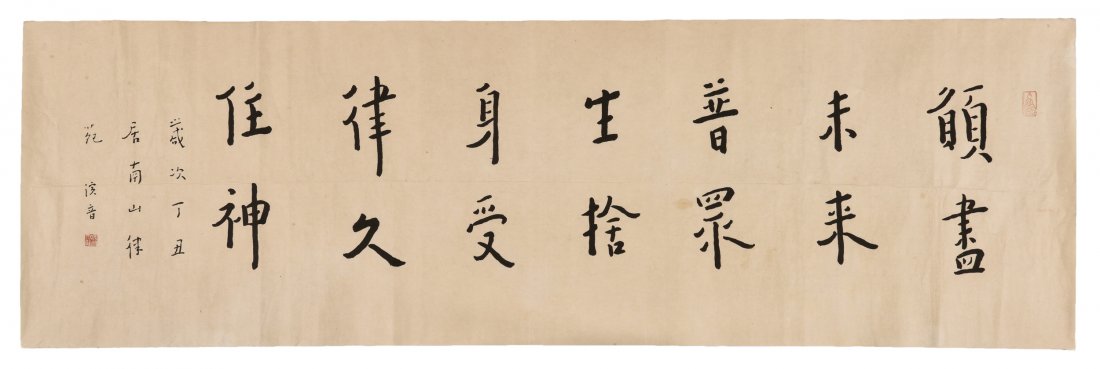 願盡
未来
普眾
生捨
身受
律久
住神
歲次丁丑
居南山律
苑 演音